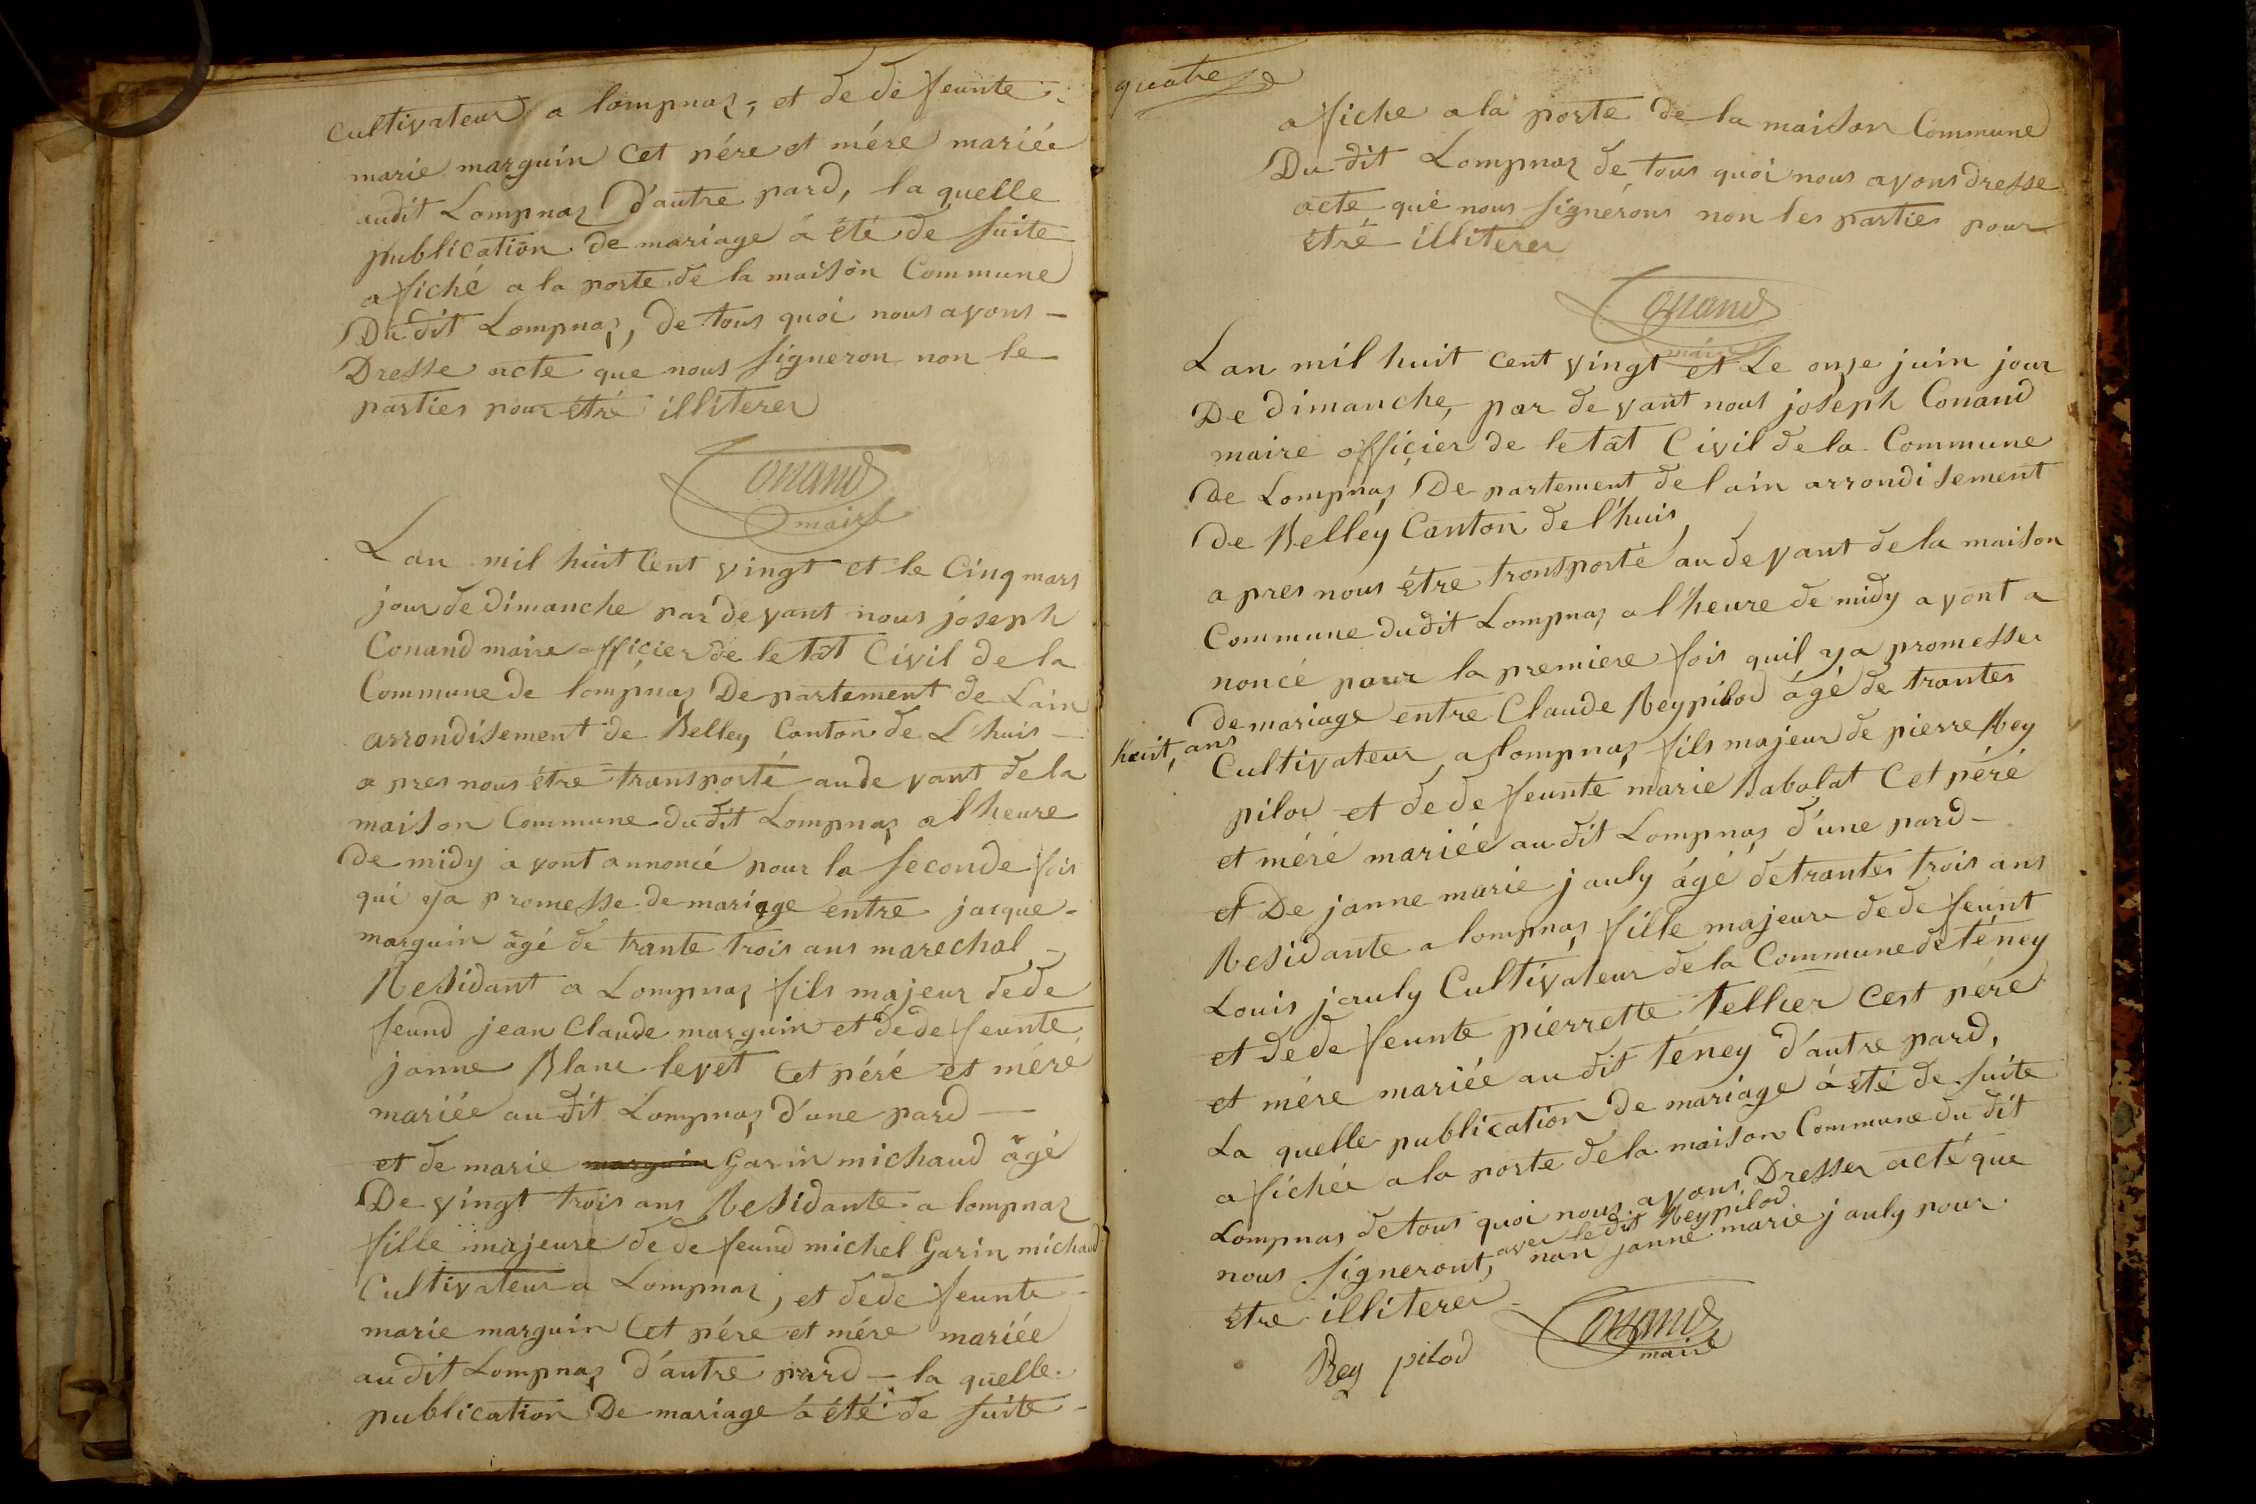 Cultivateur a lompnaz, et de de feunte
marie marguin Cet pére et mére mariée
audit Lompnaz d'autre pard, la quelle
publication de mariage á été de suite
afiché a la porte de la maison Commune
Du dit Lompnaz, de tous quoi nous avons
Dresse acte que nous signeron non le
parties pour étré illiterer
Conand
maire
Lan mil huit Cent vingt et le Cinq mars
jour de dimanche par devant nous joseph
Conand maire officier de letat Civil de la
Commune de lompnaz De partement de Lain
arrondisement de Belley Canton de L'huis
a pres nous étre transporté au de vant de la
maison Commune du dit Lompnaz a l'heure
de midy a vont annoncé pour la seconde fois
qui ya promesse de mariage entre jacque
marguin agé de trante trois ans marechal
Residant a Lompnaz fils majeur de de
feund jean Claude marguin et de de feunte
janne Blanc levet Cet péré et méré
mariée au dit Lompnaz d'une pard
et de marie marguin Garin michaud âgé
De vingt trois ans Residante a lompnaz
fille majeure de de feund michel Garin michaud
Cultivateur a Lompnaz, et de de feunte
marie marguin Cet pére et mére mariée
au dit Lompnaz d'autre pard la quelle
publication De mariage á été de suite
quatre
afiche a la porte de la maison Commune
Du dit Lompnaz de tous quoi nous avons dresse
acte que nous signerons non les parties pour
étré illiterer
Conand
maire
Lan mil huit cent vingt et Le onze juin jour
De dimanche, par de vant nous joseph Conand
maire officier de letat Civil de la Commune
de Lompnaz De partement de lain arrondisement
de Belley Canton de l'huis,
a pres nous étre transporté au de vant de la maison
Commune du dit Lompnaz a l'heure de midy avont a
noncé pour la premiere fois quil ya promesser
de mariage entre Claude Reypilod ágé de trantes
huit, ans
Cultivateur a lompnaz fils majeur de pierre Rey
pilod et de de feunte marie Babolat Cet péré
et méré mariée au dit Lompnaz d'une pard
et De janne marie jauly ágé de trantes trois ans
Residante a lompnaz fille majeure de de feunt
Louis jauly Cultivateur de la Commune de téney
et de de feunte pierrette tellier Cest pére
et mére mariée au dit téney d'autre pard,
La quelle publication de mariage á été de suite
afichée a la porte de la maison Commune du dit
Lompnas de tous quoi nous avons Dresser acté que
avec le dit Reypilod
nous signeront, non janne marie jauly pour
étre illiterer
Conand
maire
Rey pilod